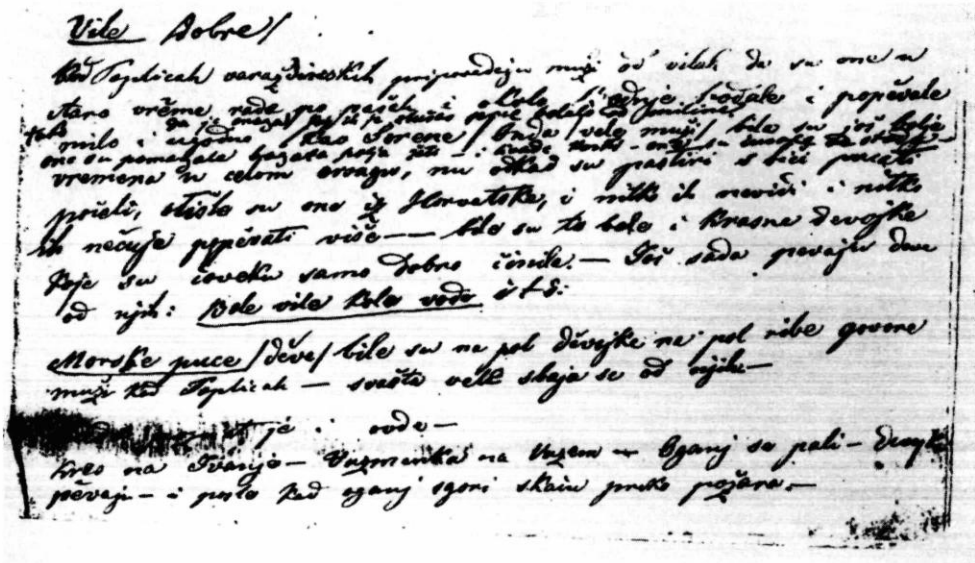 Vile Dobre/
Kod Toplicah varaždinskih pripovedaju muži od vilah da su one u
staro vrěme rade po pašah i okolo i popěvale
milo i ugodno kao Sirene/ Onda vele muži/ bila su još bolja
one su pomagale
vremena u celom orsagu, nu otkad su pastiri s biči pucati
počeli, otišle su one iz Horvatske, i nitko ih nevidi i nitko
ih nečuje popěvati više — bile su to bele i krasne devojke
koje su čověku samo dobro činile. — Još sada pevaju dece
od njih: Bele vile kolo vode i t d:
Morske puce /děve/ bile su na pol děvojke na pol ribe govore
muži kod Toplicah — svašta veli sbaja se od njih —
je i ovde —
kres na Ivanje — Vuzmenka na Vuzem — Oganj se pali —
pěvaju — i posle kad oganj sgori skaču preko požara. —